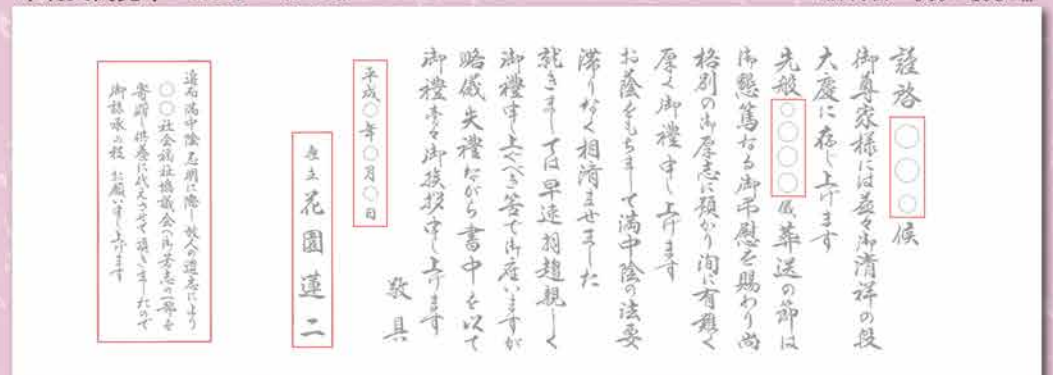 謹啓 〇〇〇候
御尊家様には益々御清祥の段
大慶に存じ上げます
先般〇〇〇〇儀 葬送の節は
御懇篤なる御弔慰を賜わり尚
格別の御厚志に預かり洵に有難く
厚く御禮申し上げます
お蔭をもちまして満中陰の法要
滞りなく相済ませました
就きましては早速拝趨親しく
御禮申し上ぐべき筈で御座いますが
略儀失禮ながら書中を以て
御禮旁々御挨拶申し上げます
敬具
平成〇年〇月〇日
喪主 花園蓮二
追而 満中陰忌明に際し故人の遺志により
〇〇社会福祉協議会へ御芳志の一部を
寄贈し供養に代えさせて頂きましたので
御諒承の程 お願い申し上げます